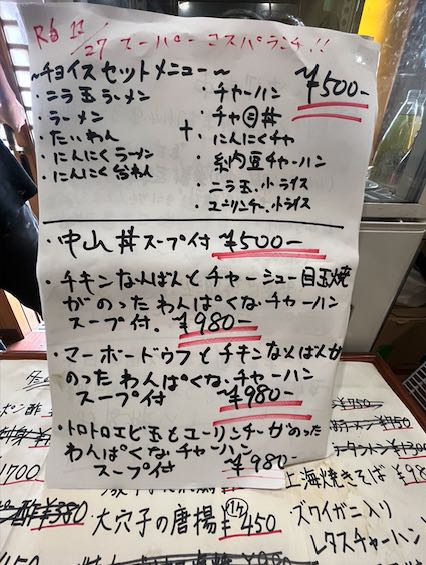 R6 11/27 スーパーコスパランチ!!
~チョイスセットメニュー~ ¥500-
・ニラ玉ラーメン
・ラーメン
・たいわん
・にんにくラーメン
・にんにく台わん
+
・チャーハン
・チャ㋯丼
・にんにくチャ
・納豆チャーハン
・ニラ玉、小ライス
・ユーリンチー、小ライス
・中山丼スープ付 ¥500-
・チキンなんばんとチャーシュー目玉焼
がのったわんぱくなチャーハン
スープ付. ¥980-
・マーボードウフとチキンなんばんが
のったわんぱくな、チャーハン
スープ付 ¥980-
・トロトロエビ玉とユーリンチーがのった
わんぱくなチャーハン
スープ付 ¥980-
ポン酢
¥750-
1700
¥380
大穴子の唐揚 ¥450
上海焼きそば ¥98
ズワイガニ入り
レタスチャーハン